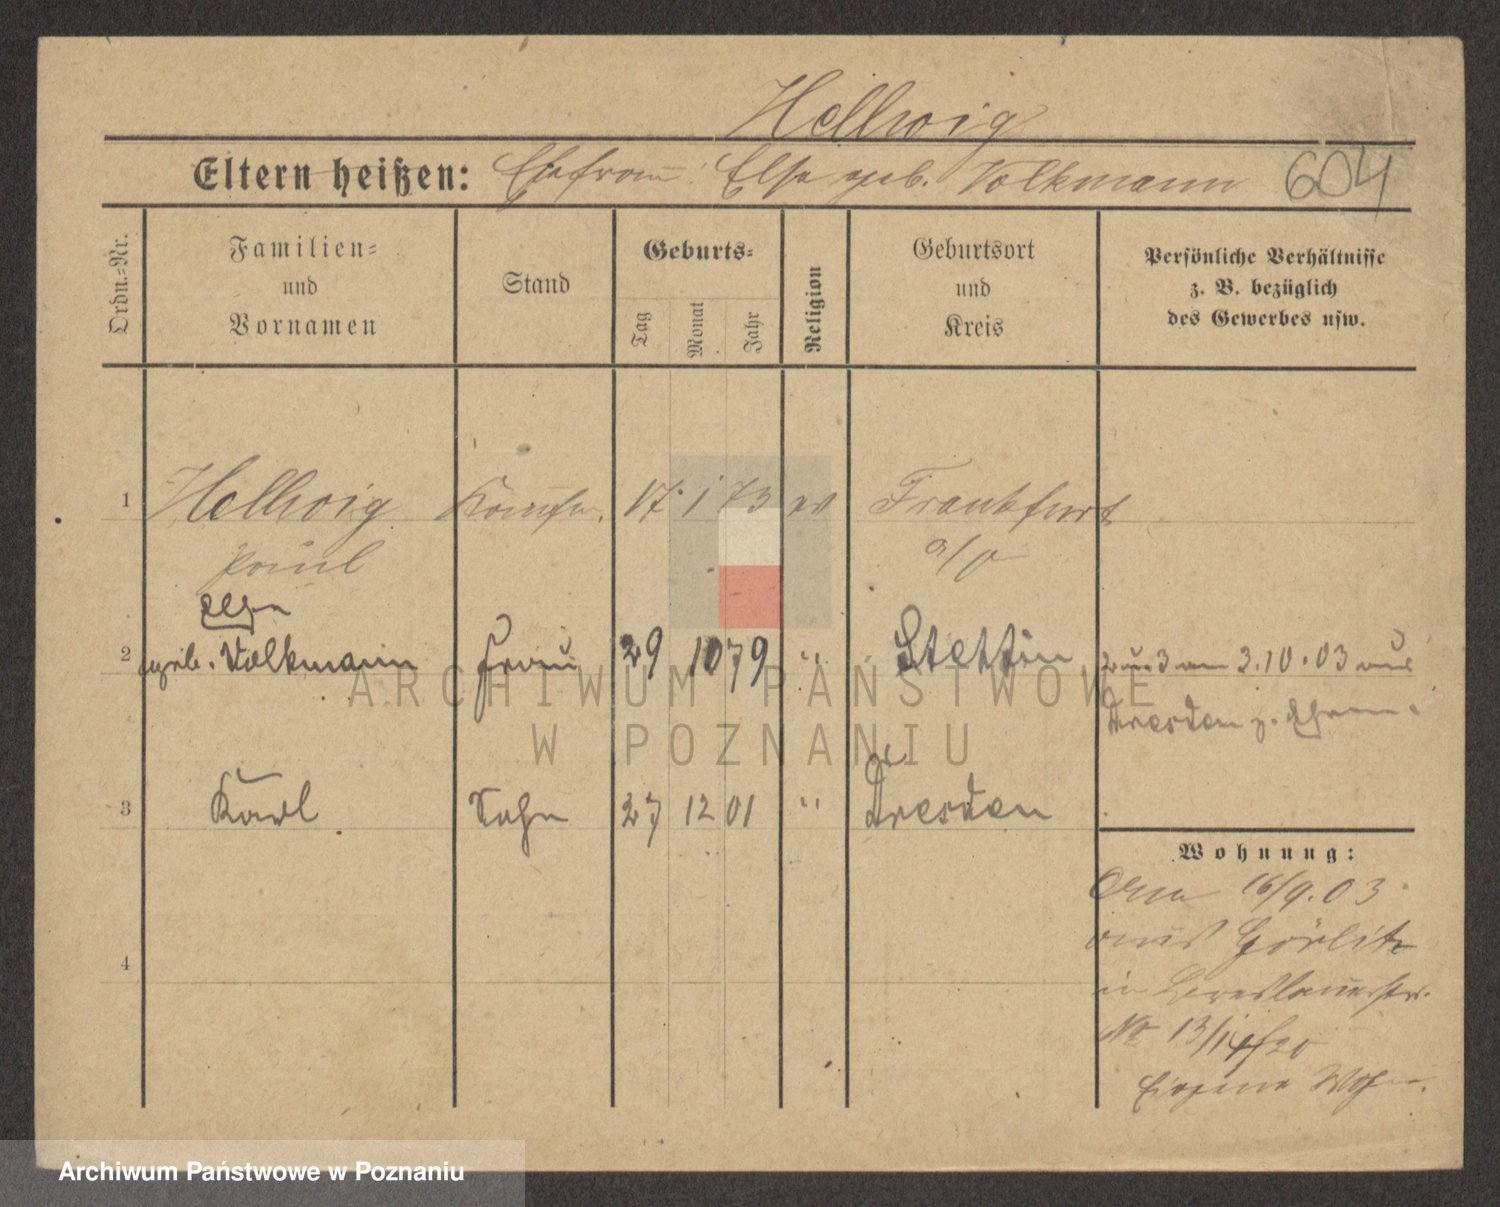 Hellwig
Eltern heißen: Ehefrau: Else geb. Volkmann 604
Ordn.-Nr.
Familien-
und
Vornamen
Stand
Geburts-
Tag
Monat
Jahr
Religion
Geburtsort
und
Kreis
Persönliche Verhältnisse
z. B. bezüglich
des Gewerbes usw.
1 Hellwig Kaufm. 17. 1 73 ev Frankfurt
Paul a/O
Else
2 geb. Volkmann Frau 29 10 79 " Stettin 2 u. 3 am 3.10.03 aus
Dresden z. Ehem.
3 Karl Sohn 27 12 01 " Dresden
Wohnung:
Am 16/9.03
aus Görlitz
4
in Breslauerstr.
No 13/14
Eigene Wohn.
ARCHIWUM PAŃSTWOWE
W POZNANIU
Archiwum Państwowe w Poznaniu